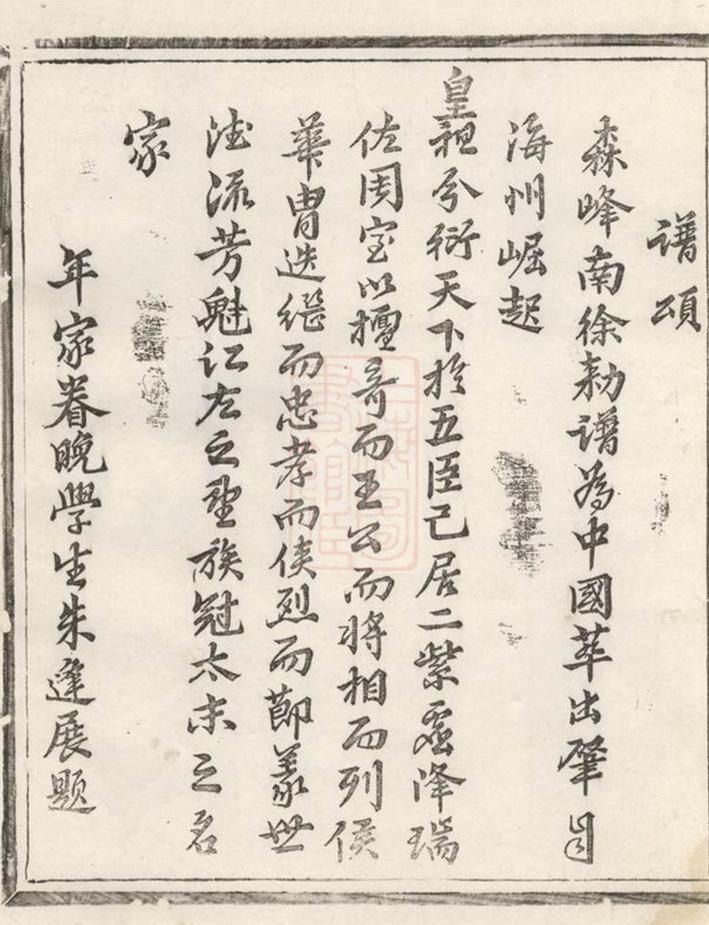 譜頌
森峰南徐勑譜為中國萃出肇自
海州崛起
皇祖兮衍天下於五臣已居二紫垣降瑞
佐周室以擅奇而王公而將相而列侯
華胄迭繼而忠孝而俠烈而節義世
德流芳魁江左之望族冠太末之名
家
年家眷晚學生朱逢展題